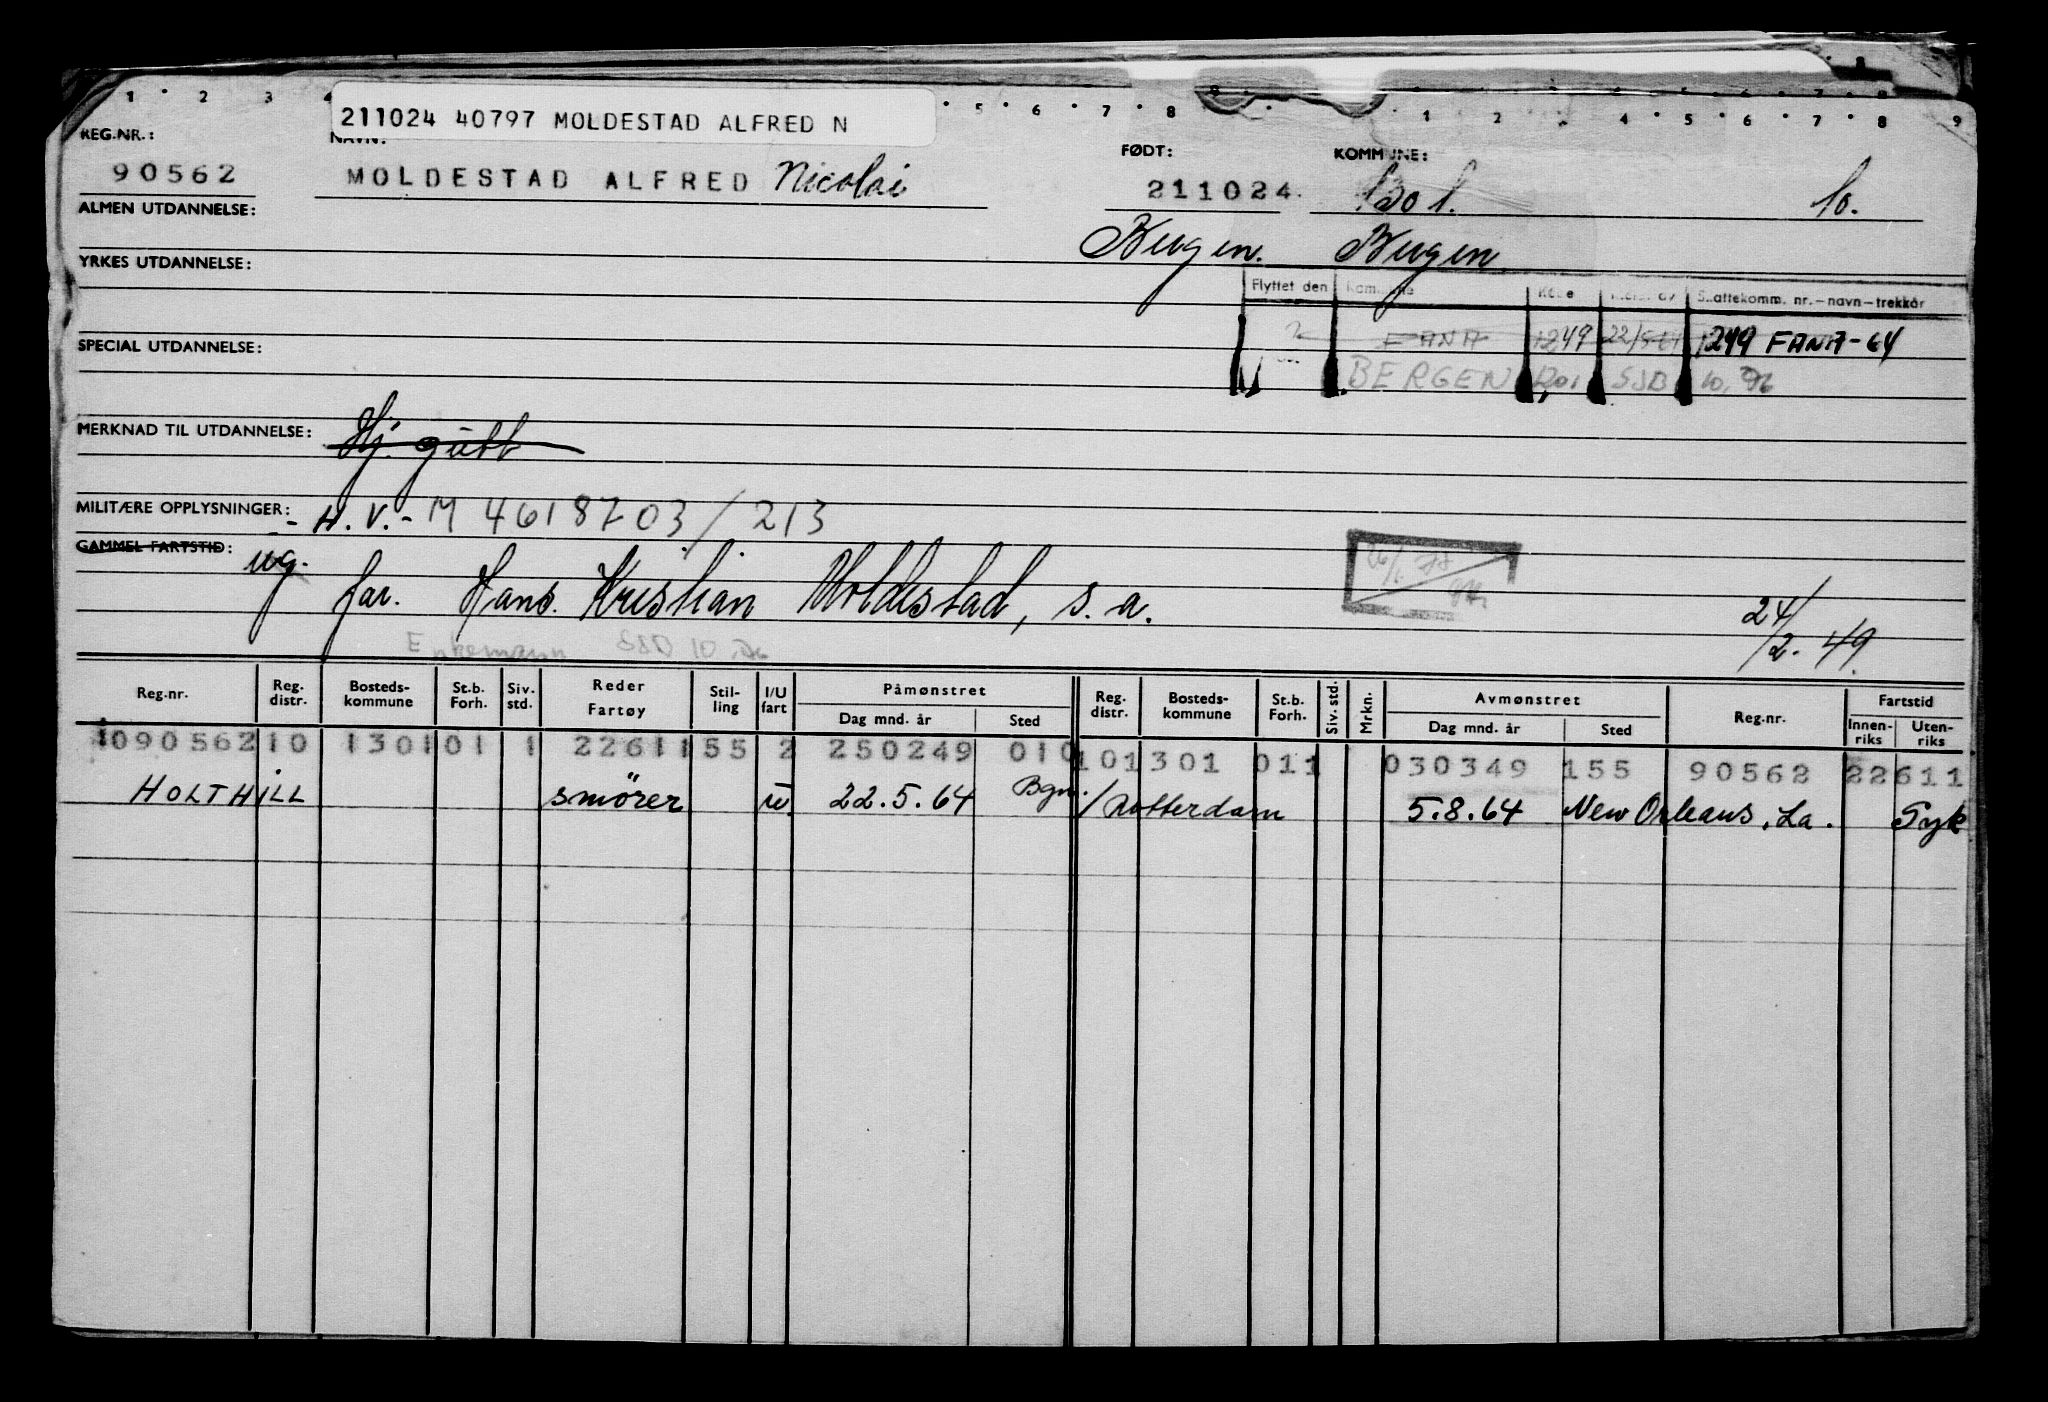 1 2 3 4 5 6 7 8 1 2 3 4 5 6 7 8 9
211024 40797 MOLDESTAD ALFRED N
REG.NR.: NAVN: FØDT: KOMMUNE:
90562 MOLDESTAD ALFRED Nicolai 211024. lo.
ALMEN UTDANNELSE:
Bergen. Bergen
YRKES UTDANNELSE:
Flyttet den Kommune Kode Skattekomm. nr.–navn–trekkår
FANA 1249 1249 FANA-64
SPECIAL UTDANNELSE:
BERGEN 1201 SJB 10.76
MERKNAD TIL UTDANNELSE: Hj. gutt
MILITÆRE OPPLYSNINGER: - H.V.- M 4618703/213
GAMMEL FARTSTID: ug.
far. Hans Kristian Moldestad, s.a.
24/2.49
Enkemann SJB 10.76
Reg.nr. Reg. distr. Bosteds-kommune St.b. Forh. Siv. std. Reder Fartøy Stil-ling I/U fart Påmønstret Dag mnd. år Sted Reg. distr. Bosteds-kommune St.b. Forh. Siv. std. Mrkn. Avmønstret Dag mnd. år Sted Reg.nr. Fartstid Innen-riks Uten-riks
1090562 10 1301 01 1 22611 55 2 250249 010 101301 011 030349 155 90562 22611
HOLTHILL smører u. 22.5.64 Bgn./Rotterdam 5.8.64 New Orleans, La. Syk